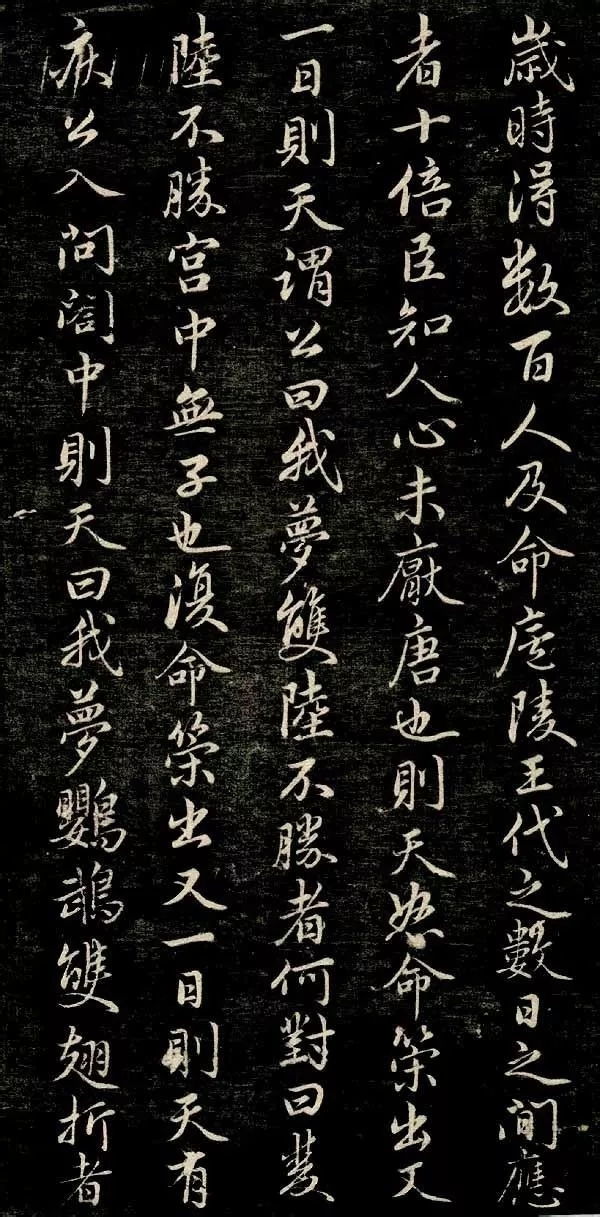 歲時得數百人及命廬陵王代之數日之間應
者十倍臣知人心未厭唐也則天怒命策出又
一日則天謂公曰我夢雙陸不勝者何對曰雙
陸不勝宮中無子也復命策出又一日則天有
疾公入問閤中則天曰我夢鸚鵡雙翅折者